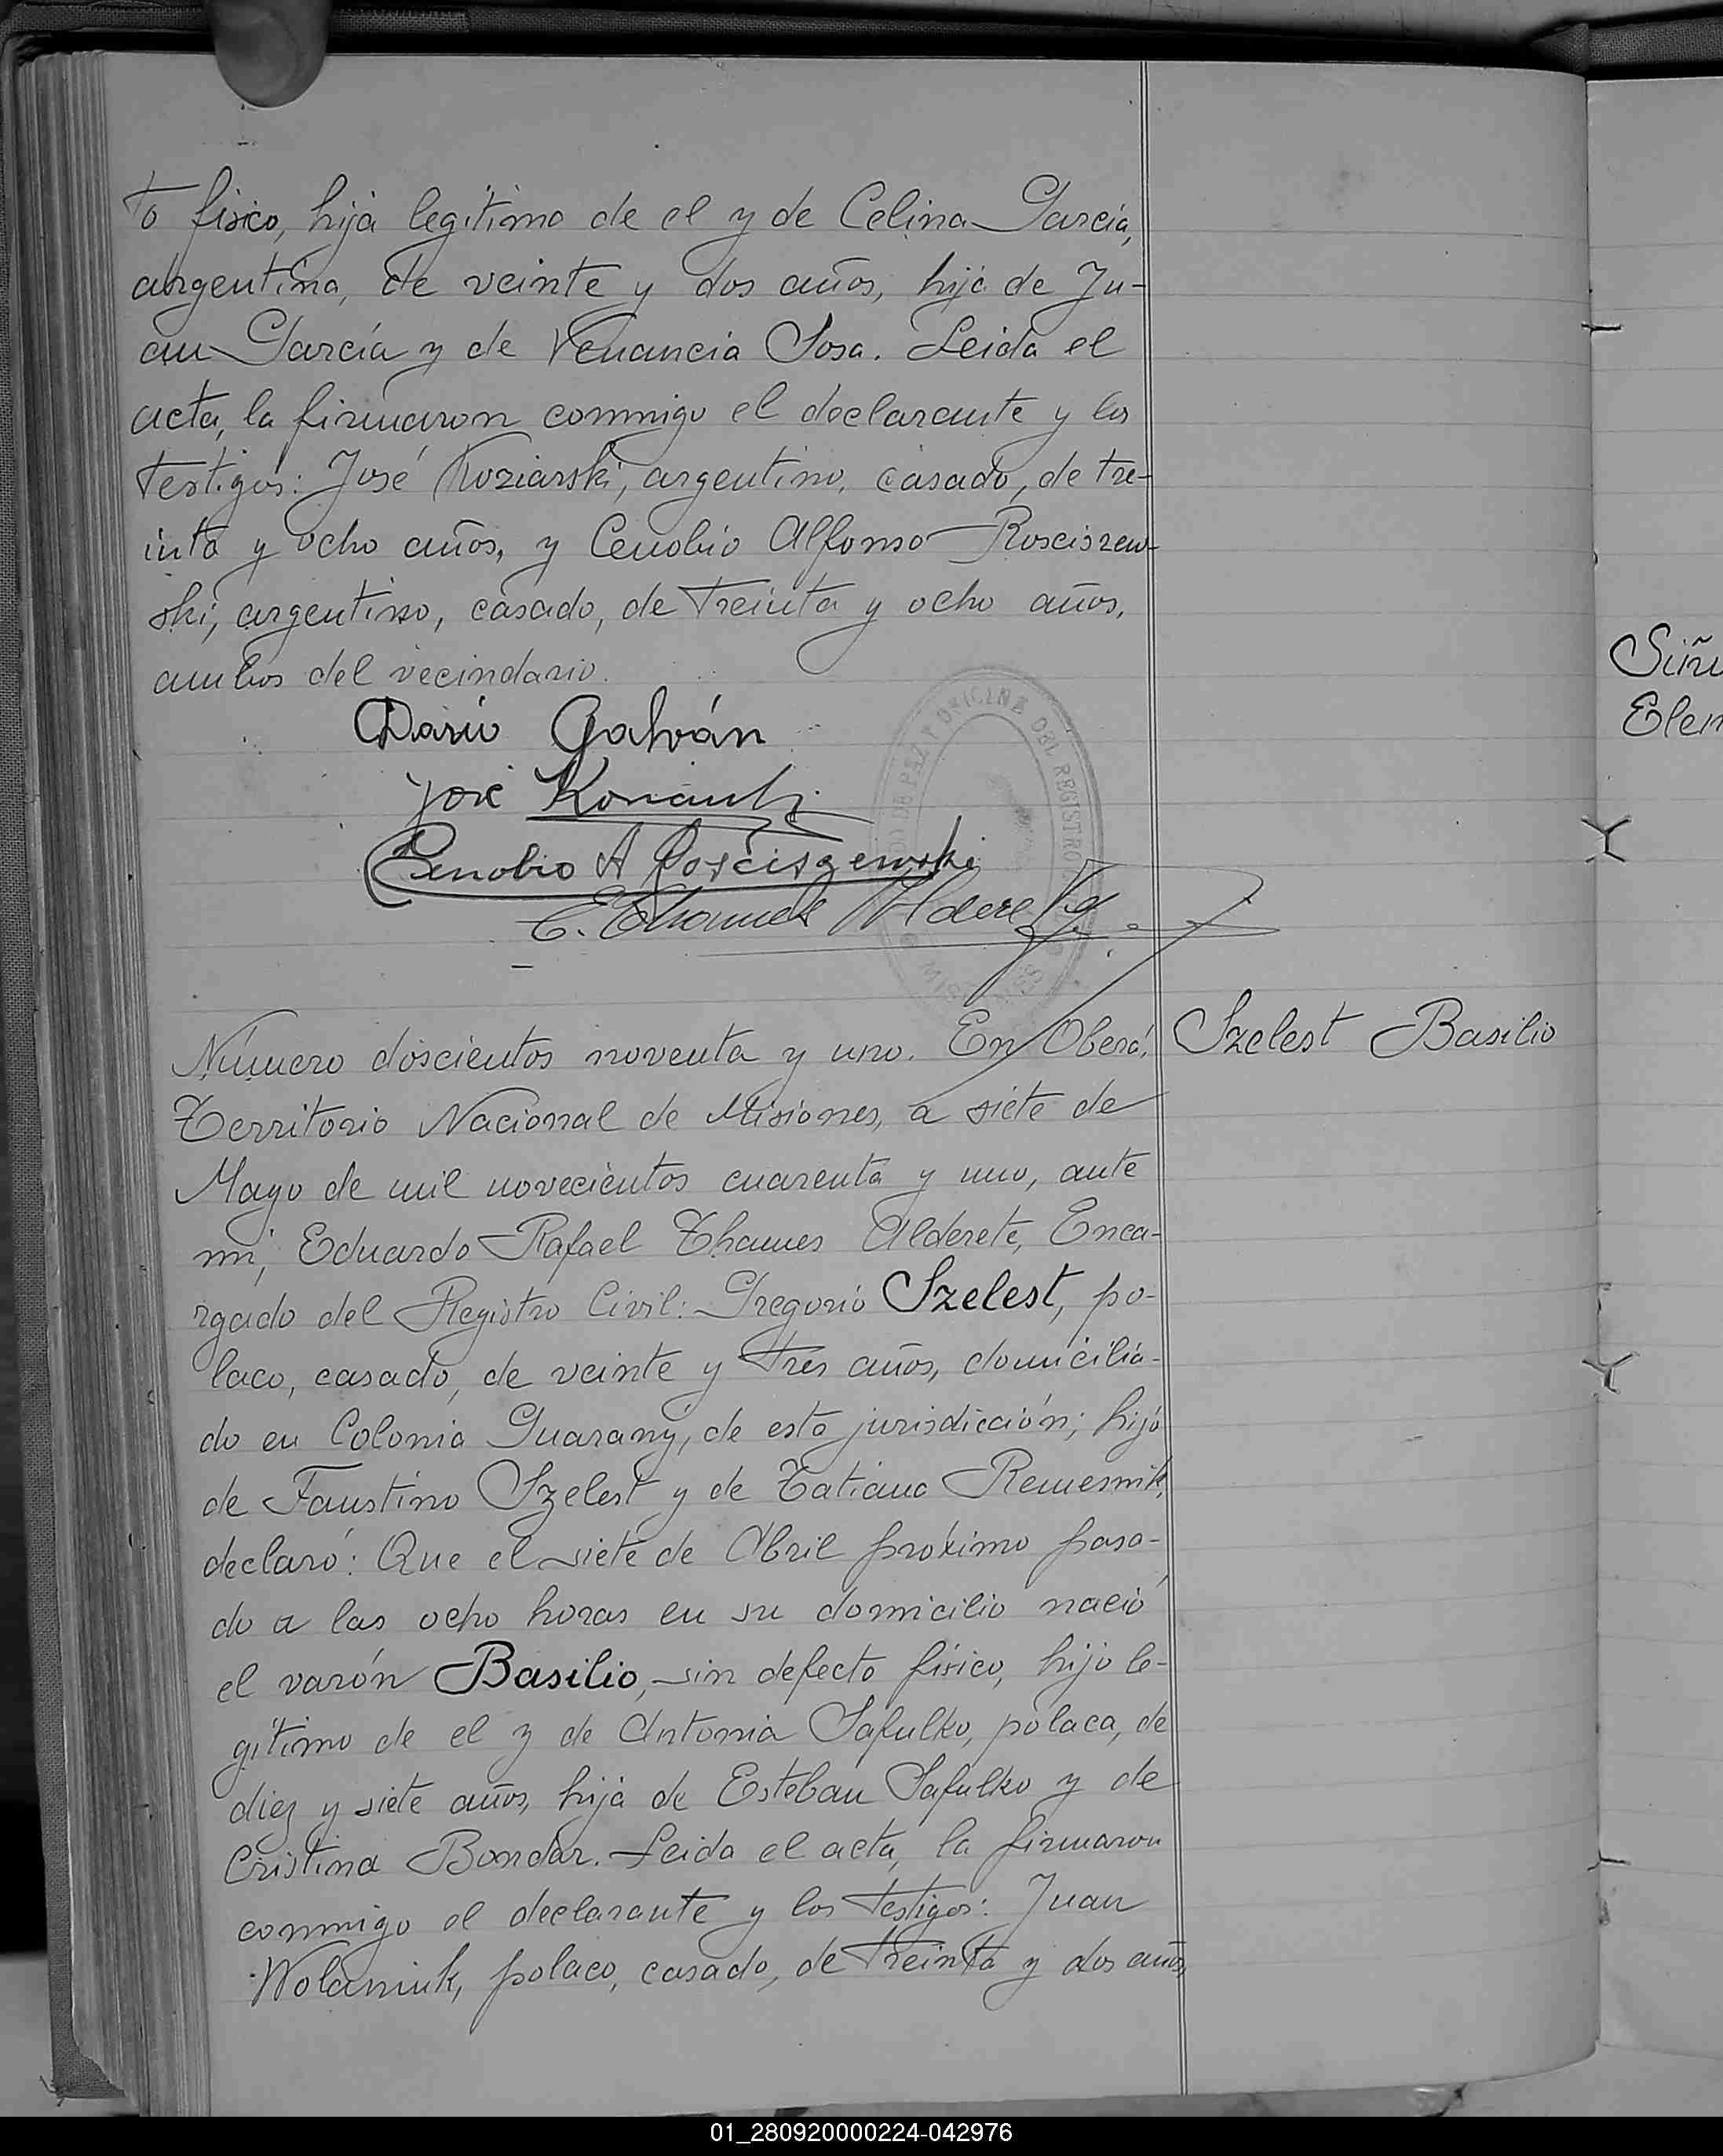 to fisico, hija legitima de el y de Celina García,
argentina, de veinte y dos años, hija de Ju-
an García y de Venancia Sosa. Leida el
acta, la firmaron conmigo el declarante y los
testigos: José Koziarski, argentino, casado, de tre-
inta y ocho años, y Cenobio Alfonso Rosciszew-
ski, argentino, casado, de treinta y ocho años,
ambos del vecindario.
Darío Galván
José
Cenobio A Rosciszewski
E. Thames Alderete
DE PAZ Y OFICINA DEL REGISTRO
Número doscientos noventa y uno. En Oberá,
Szelest Basilio
Territorio Nacional de Misiones, a siete de
Mayo de mil novecientos cuarenta y uno, ante
mi, Eduardo Rafael Thames Alderete, Enca-
rgado del Registro Civil: Gregorio Szelest, po-
laco, casado, de veinte y tres años, domicilia-
do en Colonia Guarany, de esta jurisdicción; hijo
de Faustino Szelest y de Tatiana Remesnik,
declaró: Que el siete de Abril proximo pasa-
do a las ocho horas en su domicilio nació
el varón Basilio, sin defecto físico, hijo le-
gitimo de el y de Antonia Safulko, polaca, de
diez y siete años, hija de Esteban Safulko y de
Cristina Bondar. Leida el acta, la firmaron
conmigo el declarante y los testigos: Juan
Wolaniuk, polaco, casado, de treinta y dos años,
Elen
01_280920000224-042976